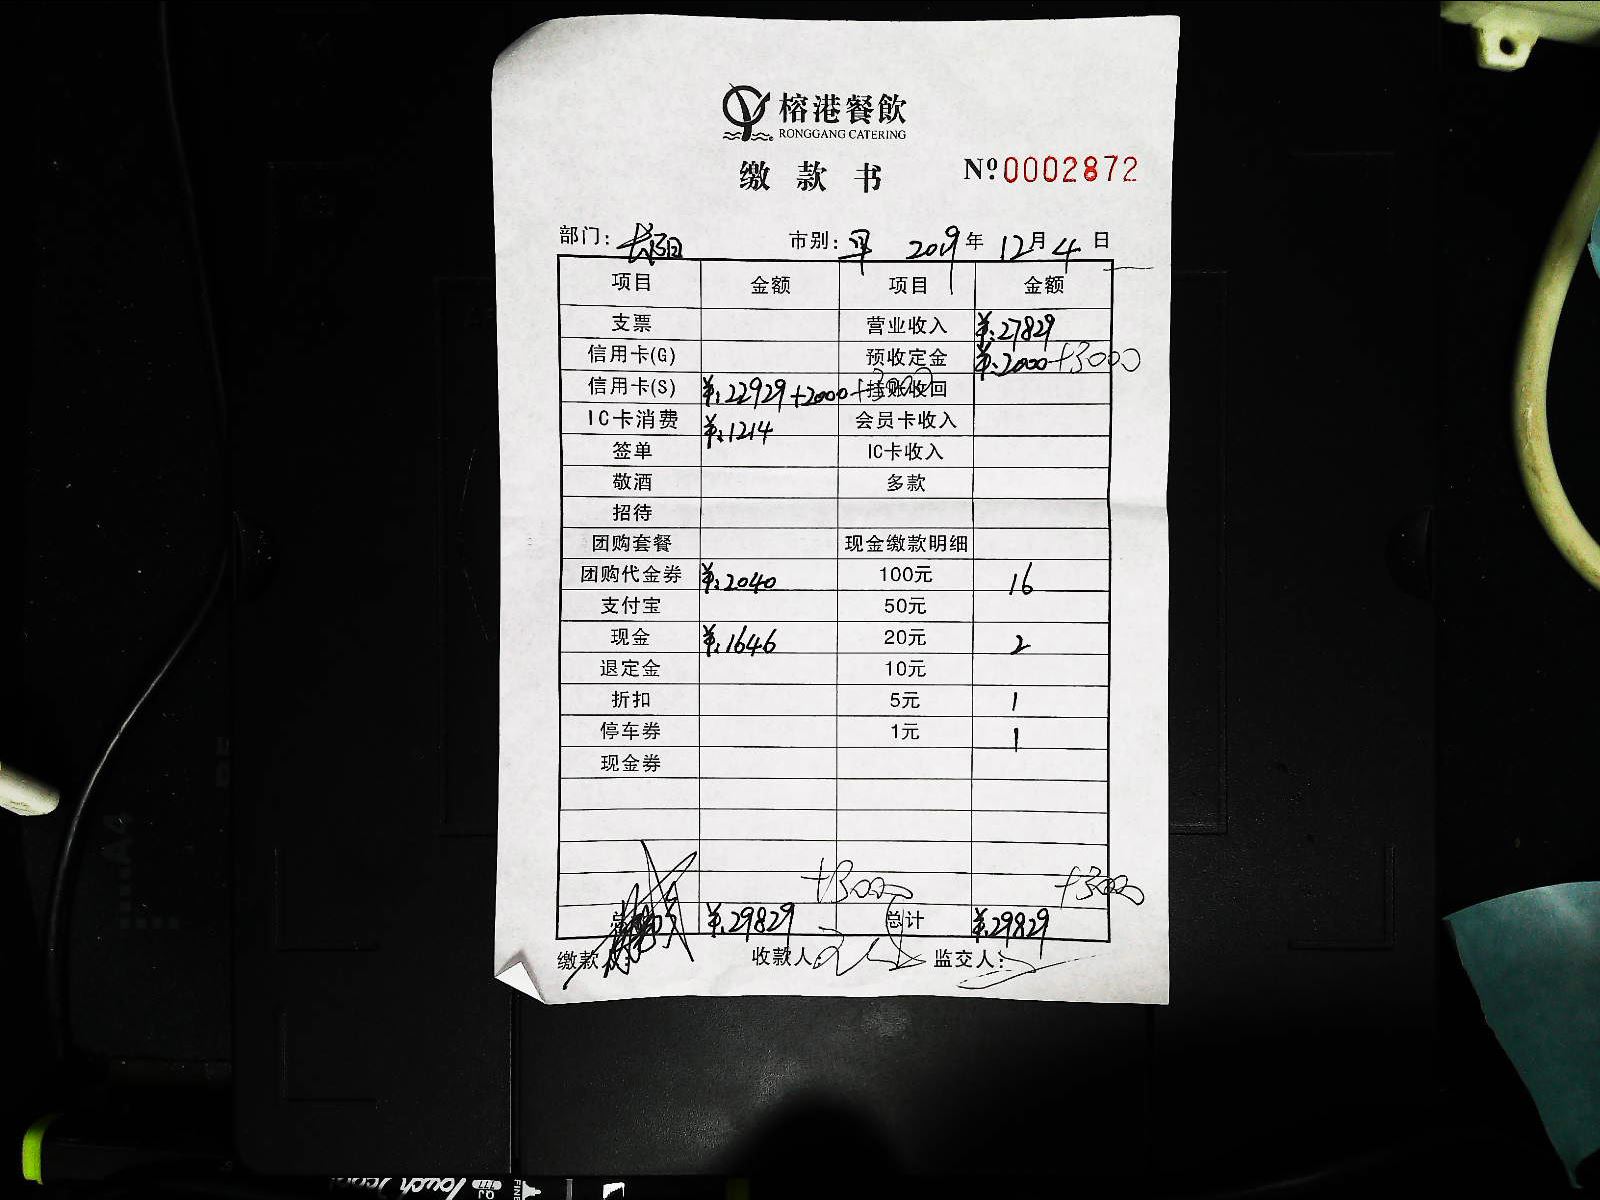 榕港餐飲
RONGGANG CATERING
缴款书 Nº.0002872
部门: 市别: 早 2019年 12月 4日
项目 金额 项目 金额
支票 营业收入 ¥:27829
信用卡(G) 预收定金 ¥:2000+3000
信用卡(S) ¥:22929+2000+3000 挂账收回
IC卡消费 ¥:1214 会员卡收入
签单 IC卡收入
敬酒 多款
招待
团购套餐 现金缴款明细
团购代金券 ¥:2040 100元 16
支付宝 50元
现金 ¥:1646 20元 2
退定金 10元
折扣 5元 1
停车券 1元 1
现金券
+3000 +3000
总 ¥:29829 总计 ¥:29829
缴款 收款人: 监交人:
A4